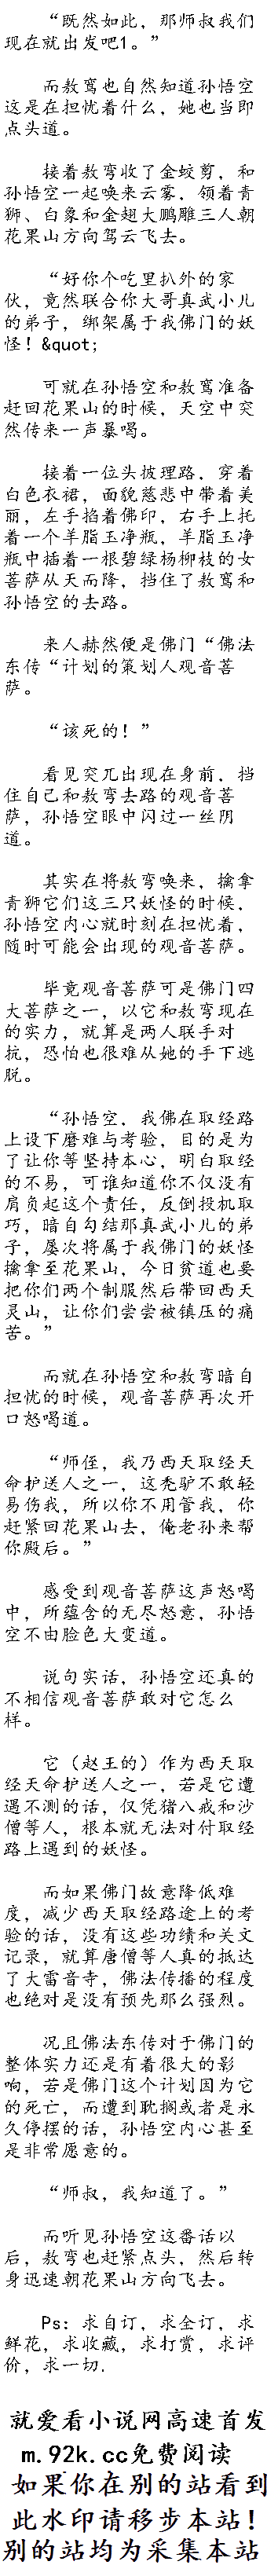 “既然如此，那师叔我们
现在就出发吧1。”
而敖鸾也自然知道孙悟空
这是在担忧着什么，她也当即
点头道。
接着敖鸾收了金蛟剪，和
孙悟空一起唤来云雾，领着青
狮、白象和金翅大鹏雕三人朝
花果山方向驾云飞去。
“好你个吃里扒外的家
伙，竟然联合你大哥真武小儿
的弟子，绑架属于我佛门的妖
怪！&quot;
可就在孙悟空和敖鸾准备
赶回花果山的时候，天空中突
然传来一声暴喝。
接着一位头披理路，穿着
白色衣裙，面貌慈悲中带着美
丽，左手掐着佛印，右手上托
着一个羊脂玉净瓶，羊脂玉净
瓶中插着一根碧绿杨柳枝的女
菩萨从天而降，挡住了敖鸾和
孙悟空的去路。
来人赫然便是佛门“佛法
东传“计划的策划人观音菩
萨。
“该死的！”
看见突兀出现在身前，挡
住自己和敖鸾去路的观音菩
萨，孙悟空眼中闪过一丝阴
道。
其实在将敖鸾唤来，擒拿
青狮它们这三只妖怪的时候，
孙悟空内心就时刻在担忧着，
随时可能会出现的观音菩萨。
毕竟观音菩萨可是佛门四
大菩萨之一，以它和敖鸾现在
的实力，就算是两人联手对
抗，恐怕也很难从她的手下逃
脱。
“孙悟空，我佛在取经路
上设下磨难与考验，目的是为
了让你等坚持本心，明白取经
的不易，可谁知道你不仅没有
肩负起这个责任，反倒投机取
巧，暗自勾结那真武小儿的弟
子，屡次将属于我佛门的妖怪
擒拿至花果山，今日贫道也要
把你们两个制服然后带回西天
灵山，让你们尝尝被镇压的痛
苦。”
而就在孙悟空和敖鸾暗自
担忧的时候，观音菩萨再次开
口怒喝道。
“师侄，我乃西天取经天
命护送人之一，这秃驴不敢轻
易伤我，所以你不用管我，你
赶紧回花果山去，俺老孙来帮
你殿后。”
感受到观音菩萨这声怒喝
中，所蕴含的无尽怒意，孙悟
空不由脸色大变道。
说句实话，孙悟空还真的
不相信观音菩萨敢对它怎么
样。
它（赵王的）作为西天取
经天命护送人之一，若是它遭
遇不测的话，仅凭猪八戒和沙
僧等人，根本就无法对付取经
路上遇到的妖怪。
而如果佛门故意降低难
度，减少西天取经路途上的考
验的话，没有这些功绩和关文
记录，就算唐僧等人真的抵达
了大雷音寺，佛法传播的程度
也绝对是没有预先那么强烈。
况且佛法东传对于佛门的
整体实力还是有着很大的影
响，若是佛门这个计划因为它
的死亡，而遭到耽搁或者是永
久停摆的话，孙悟空内心甚至
是非常愿意的。
“师叔，我知道了。”
而听见孙悟空这番话以
后，敖鸾也赶紧点头，然后转
身迅速朝花果山方向飞去。
Ps：求自订，求全订，求
鲜花，求收藏，求打赏，求评
价，求一切.
就爱看小说网高速首发
m.92k.cc免费阅读
如果你在别的站看到
此水印请移步本站！
别的站均为采集本站